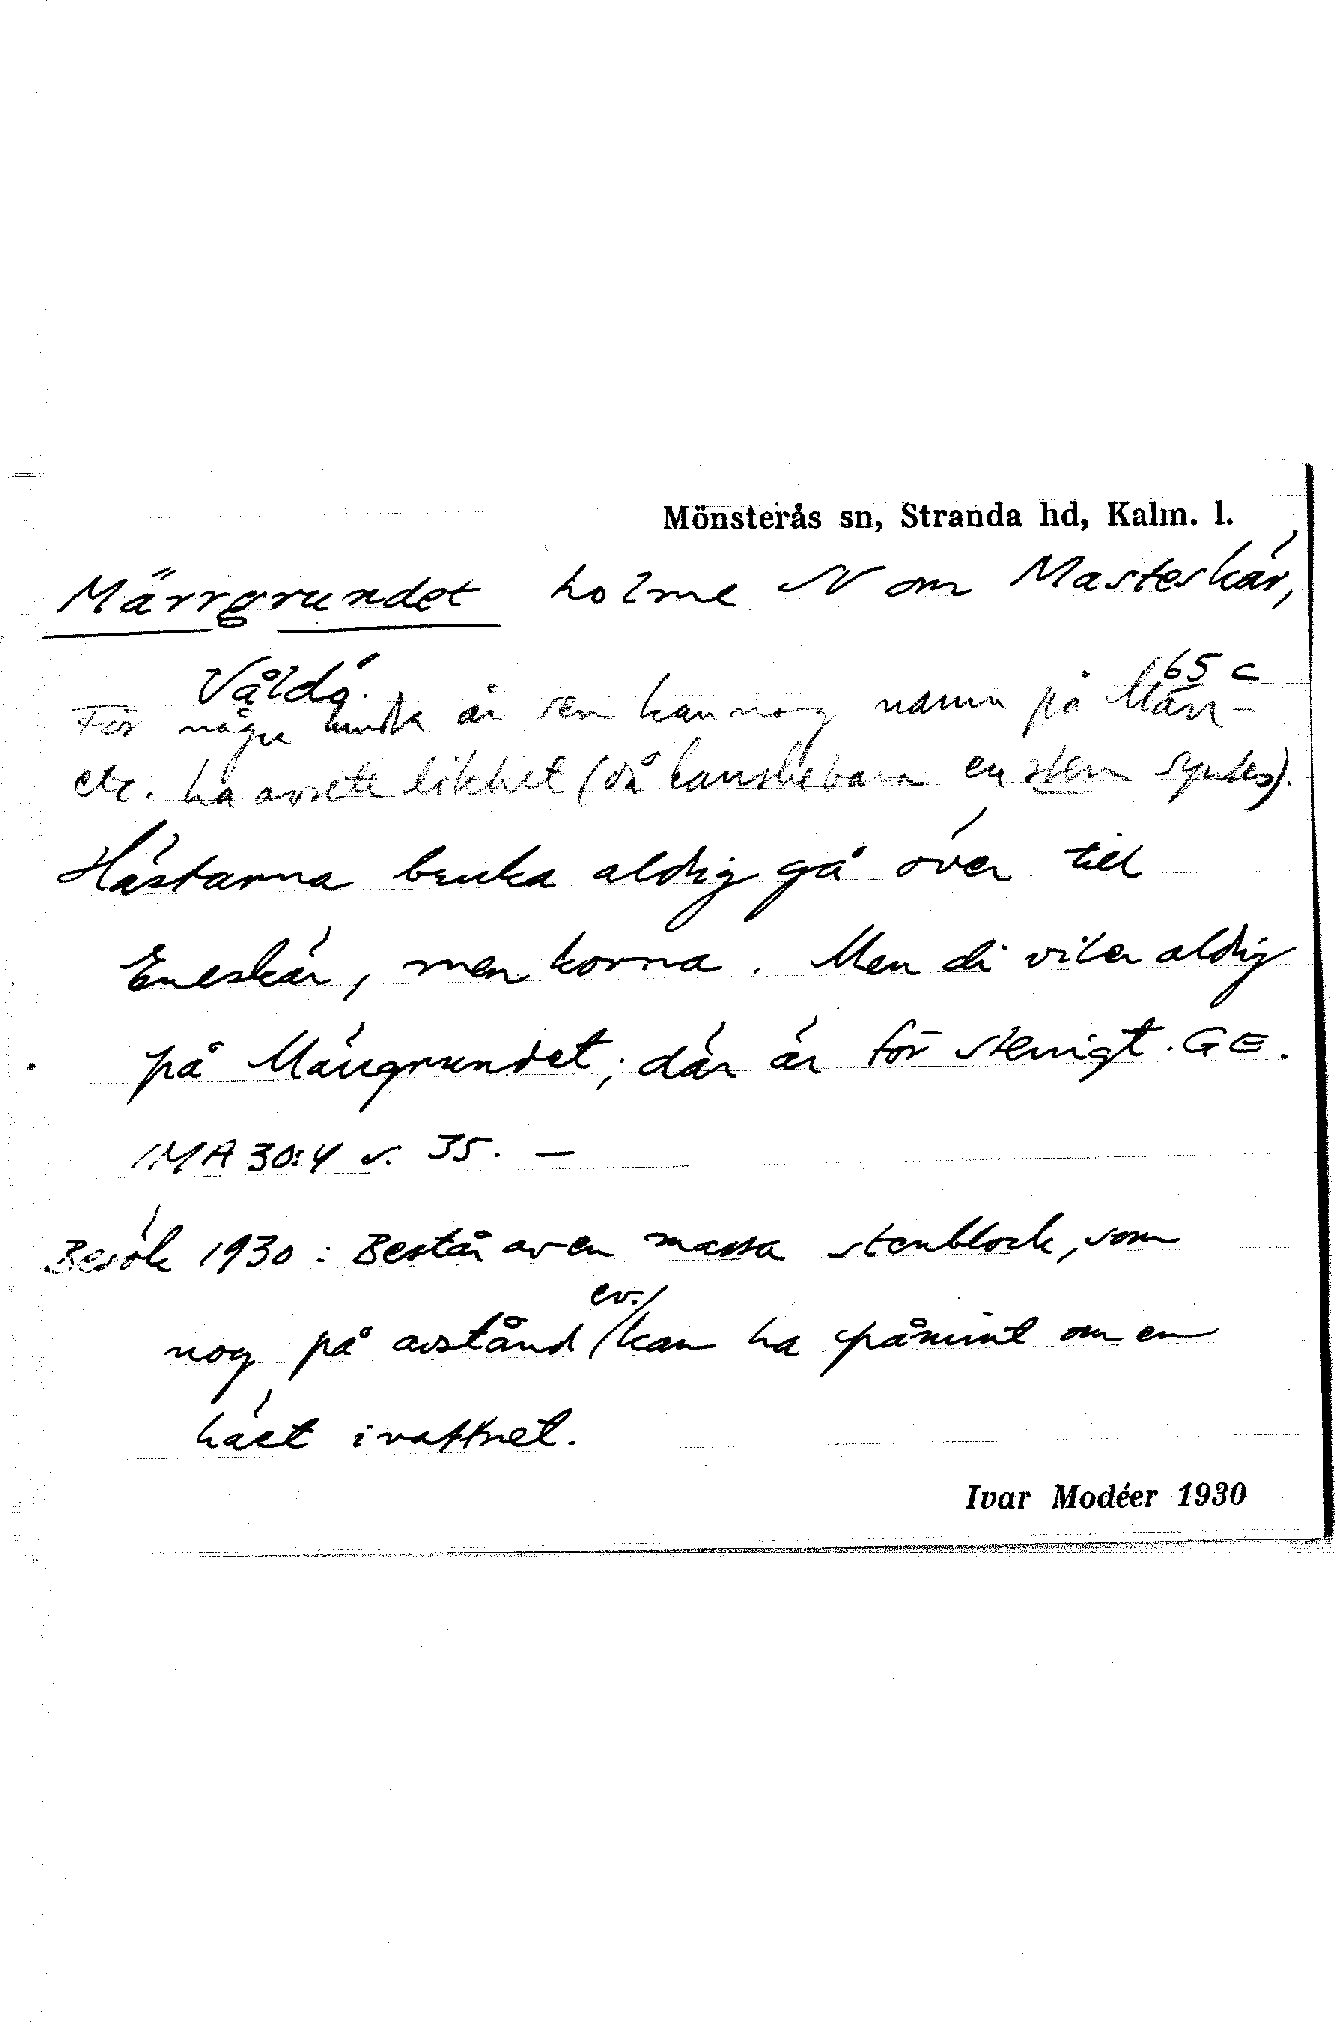 Mönsterås sn, Stranda hd, Kalm. l.
Märrgrundet holme N om Masteskär,
Våldö. 65 c
För några hundra år sen kan nog namn på Märr-
etc. ha avsett likhet (då kanske bara en sten syntes).
Hästarna bruka aldrig gå över till
Eneskär, men korna. Men di vilar aldrig
på Märrgrundet; där är för stenigt. GE.
IMA 30:4 s. 35. —
Besök 1930: Består av en massa stenblock, som
ev.
nog på avstånd kan ha påmint om en
häst i vattnet.
Ivar Modéer 1930